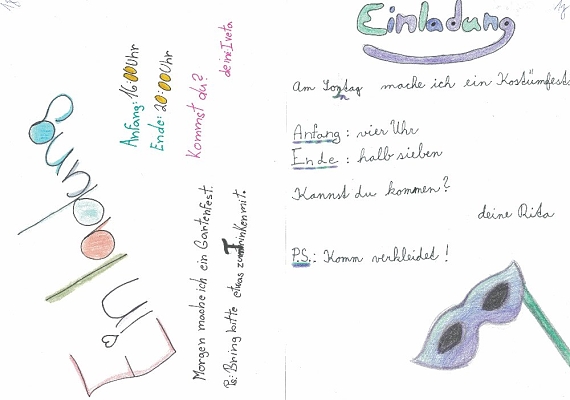 Einladung
Morgen mache ich ein Gartenfest.
Ps: Bring bitte etwas zum Trinken mit.
Anfang: 16:00 Uhr
Ende: 20:00 Uhr
Kommst du?
deine Iveta
Einladung
Am Sontag mache ich ein Kostümfest
Anfang: vier Uhr
Ende: halb sieben
Kannst du kommen?
deine Rita
P.S.: Komm verkleidet!